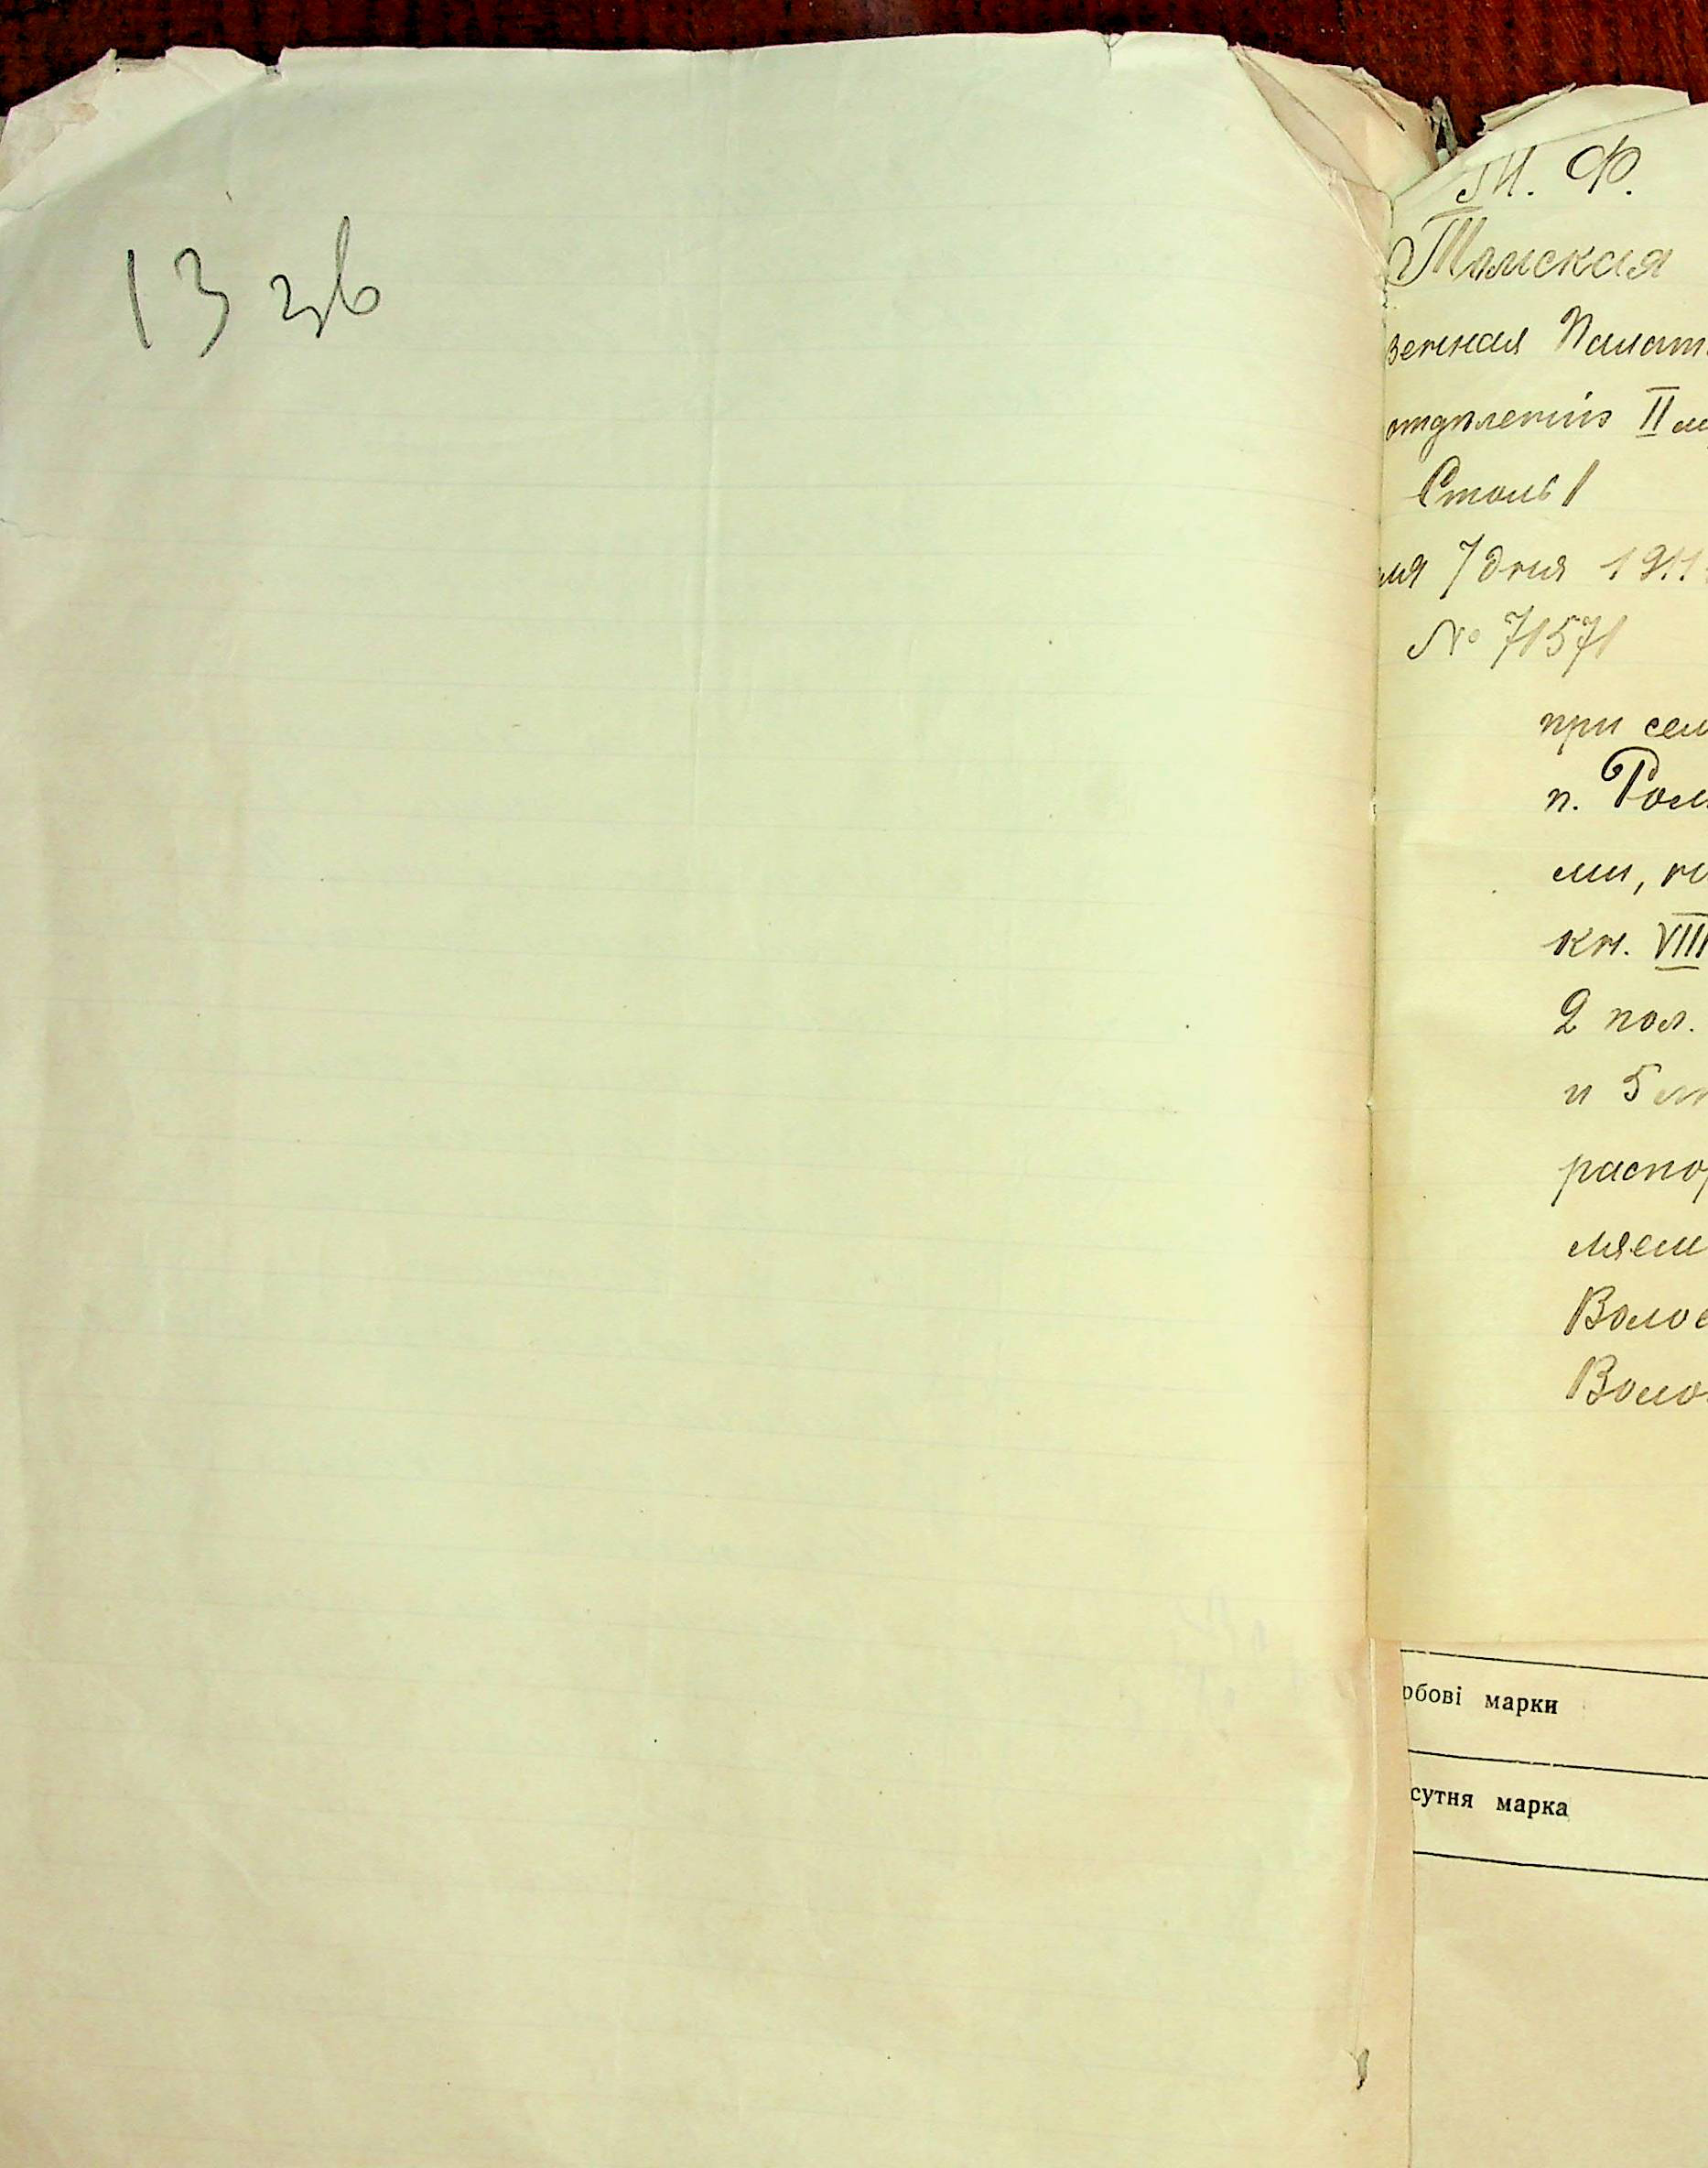 13 зв
М. Ф.
Томская
зенная Палат
отдѣленіе II
Столъ 1
ля 7 дня 1911
№ 71571
при сем
п. Ром
ми,
кн. VIII
2 пол.
и 5
распор
ляем
Волос
Воло
рбові марки
сутня марка